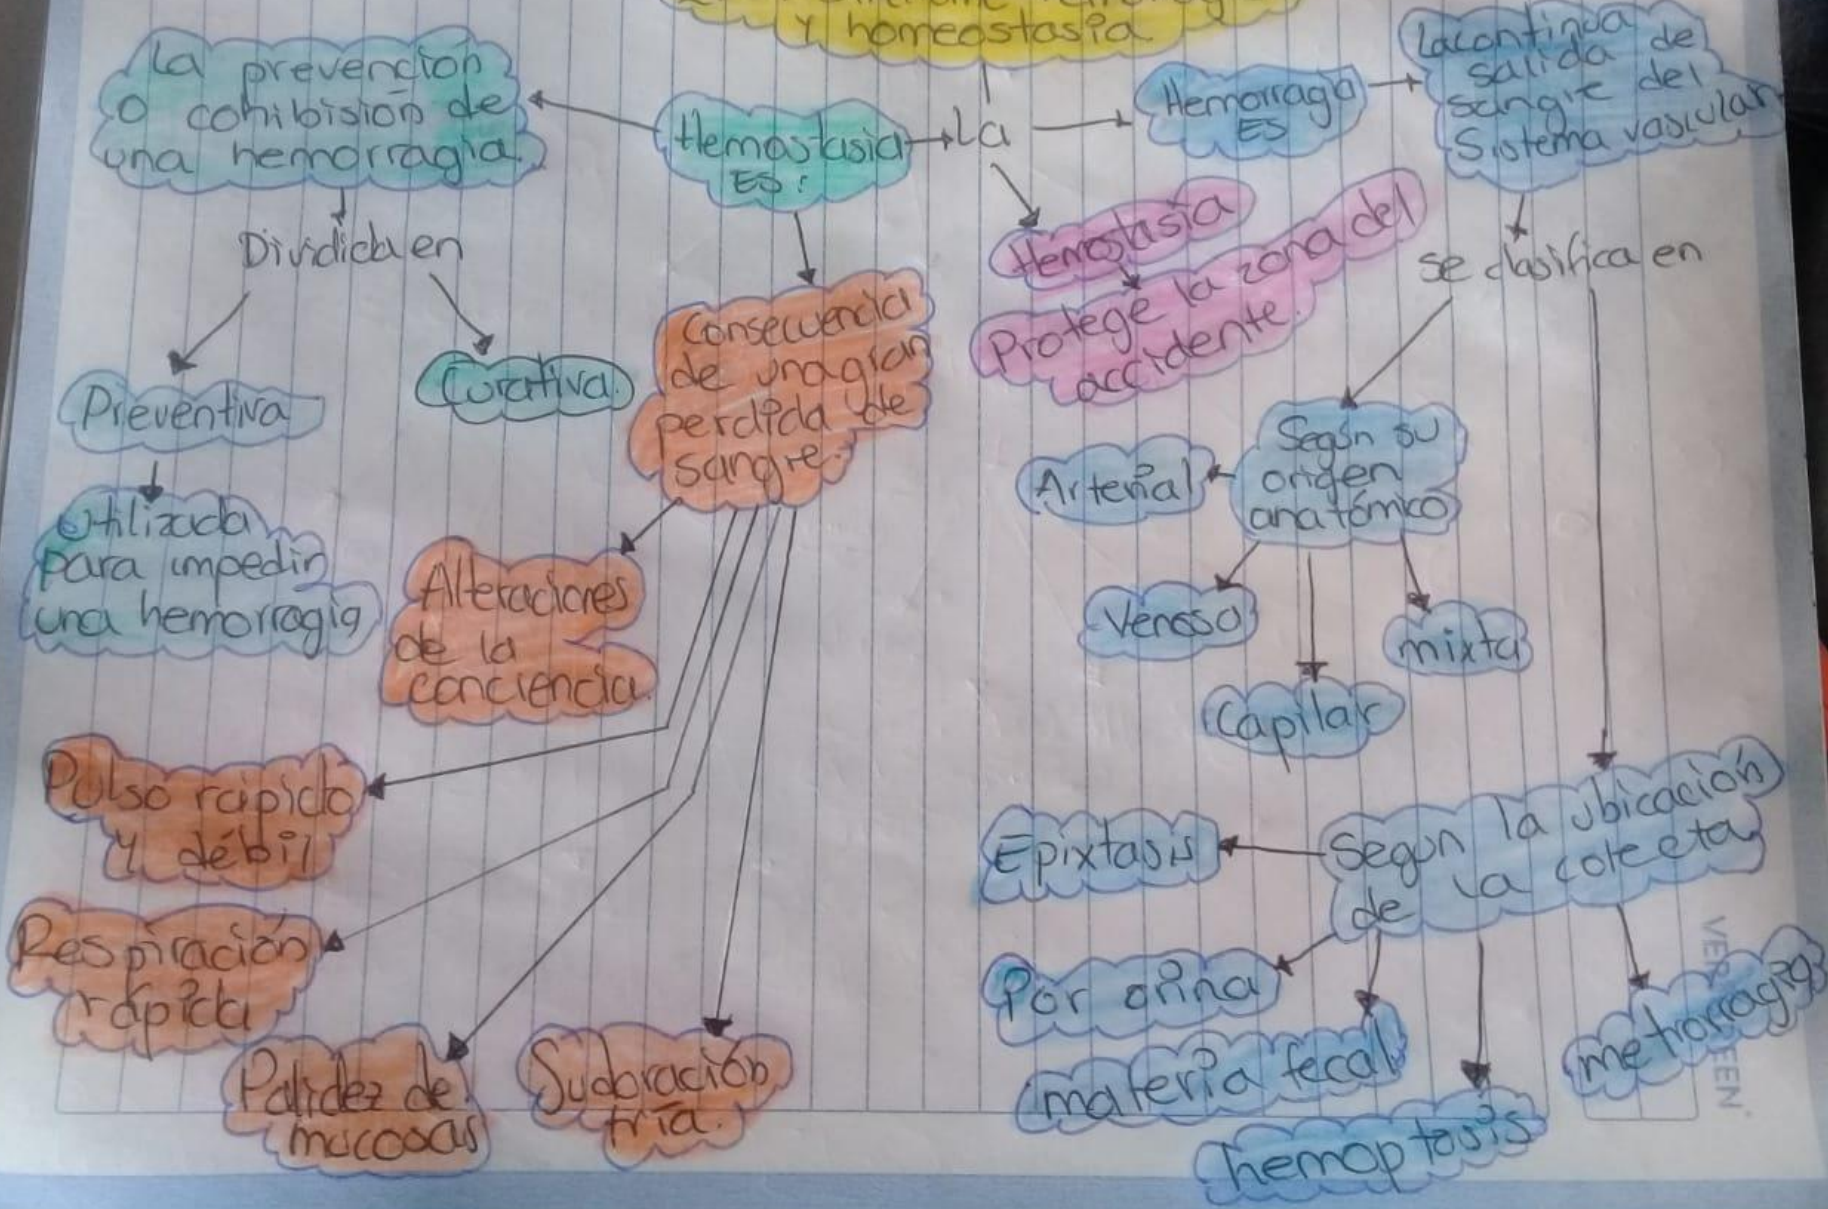 Y homeostasia
La prevención
o cohibisión de
una hemorragia.
Hemostasia
ES:
La
Hemorraga
ES
La continua
salida de
sangre del
Sistema vascular
Dividida en
Preventiva
Curativa.
Utilizada
para impedir
una hemorragia
Consecuencia
de una gran
perdida de
sangre.
Alteraciones
de la
conciencia.
Pulso rapido
Y débil
Respiración
rápida
Palidez de
mucosas
Sudoración
fría.
Hemostasia
Protege la zona del
accidente.
se clasifica en
Según su
origen
anatómico
Arterial
Venoso
Capilar
mixta
Segun la ubicación
de la
Epixtasis
Por orina
materia fecal
hemoptosis
metrorragia